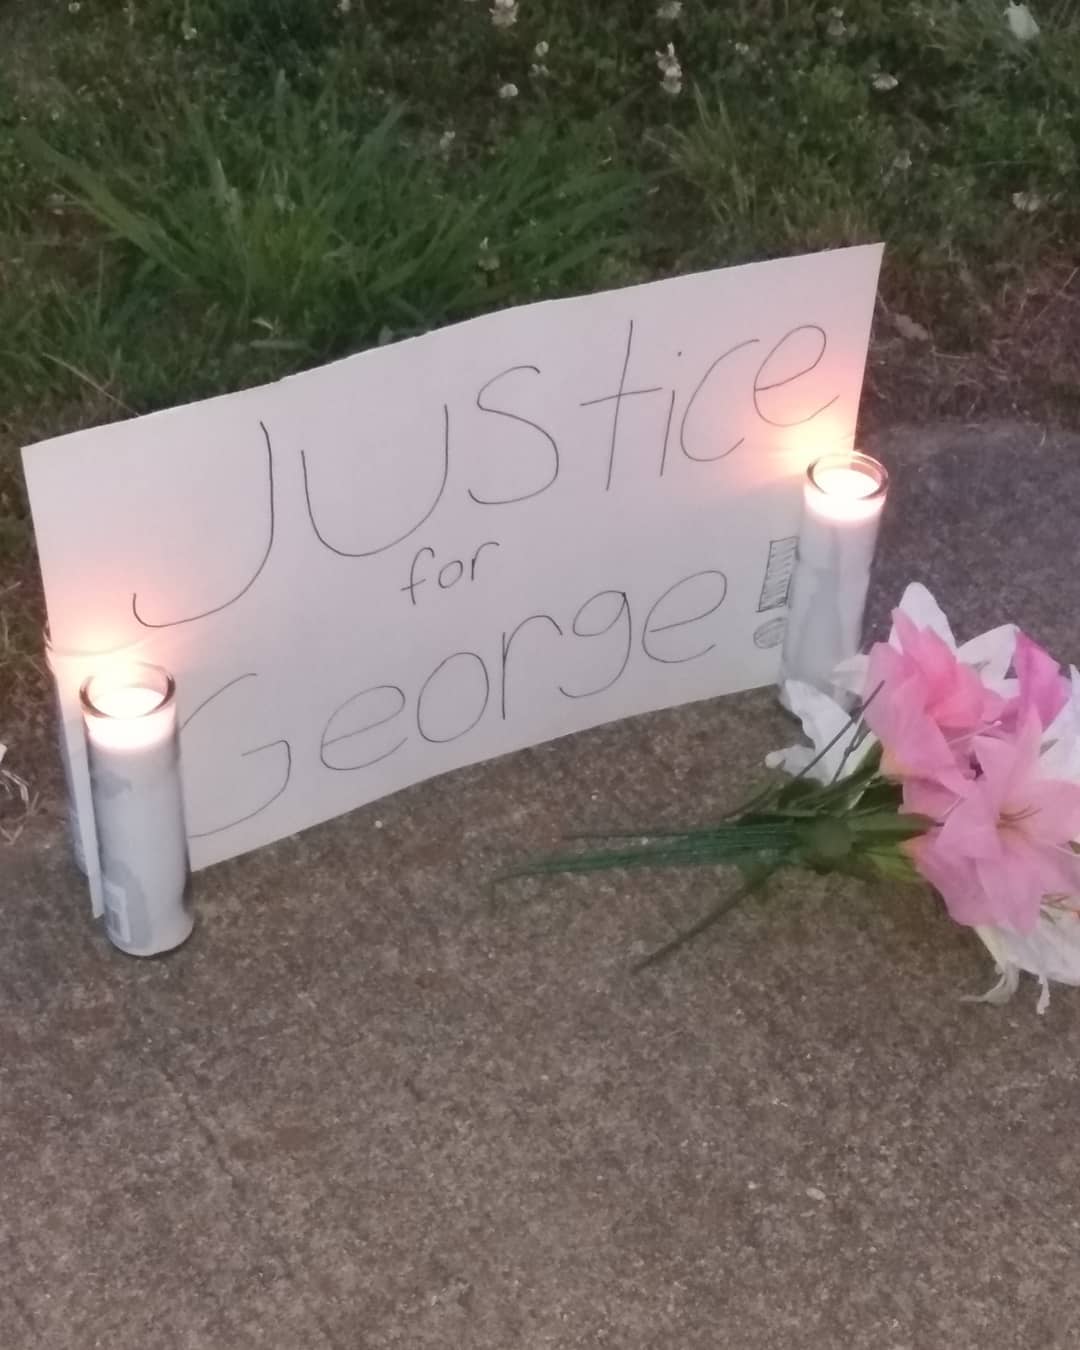 Justice
for
George!